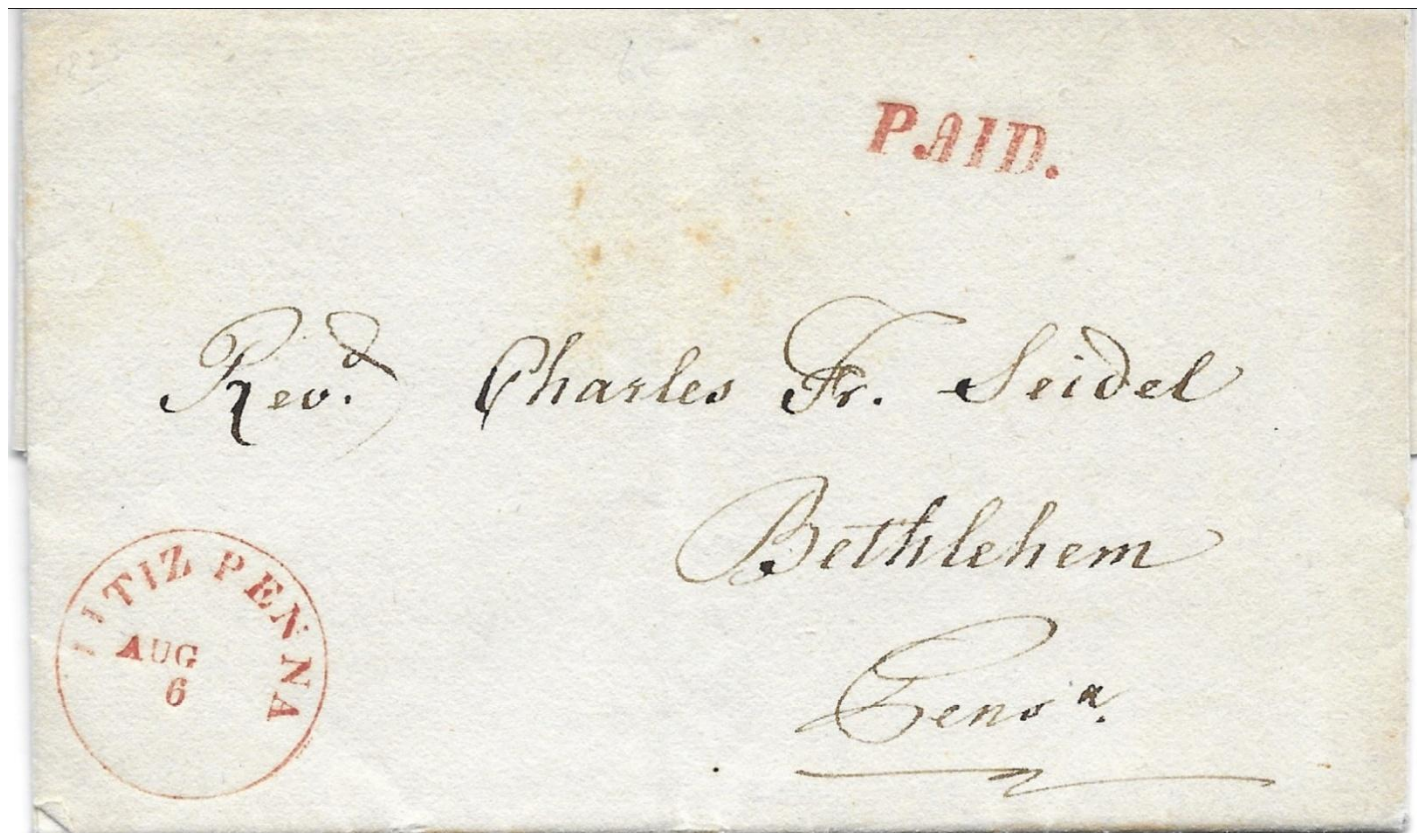 PAID.
Revd. Charles Fr. Seidel
Bethlehem
Penna.
LITIZ PENNA
AUG
6